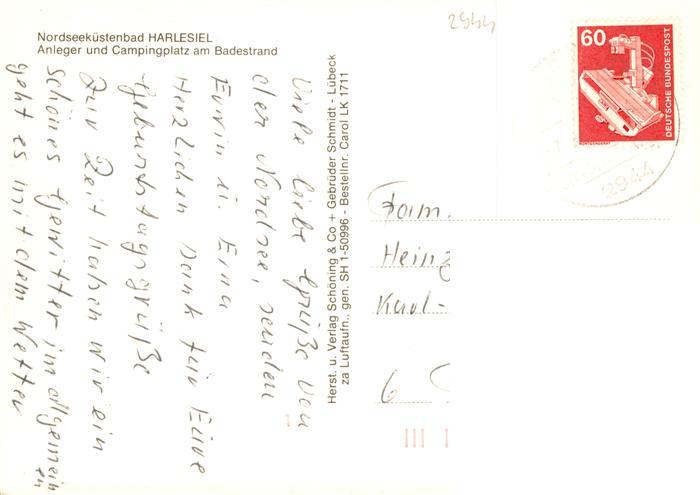 Nordseeküstenbad HARLESIEL
Anleger und Campingplatz am Badestrand
2944
Viele liebe Grüße von
der Nordsee, senden
Erwin u. Erna
Herzlichen Dank für Eure
Geburtstagsgrüße
Zur Zeit haben wir ein
schönes Gewitter im allgemein
en
geht es mit dem Wetter
Herst. u. Verlag Schöning & Co + Gebrüder Schmidt - Lübeck
za Luftaufn., gen. SH 1-50996 - Bestellnr. Carol LK 1711
60
DEUTSCHE BUNDESPOST
RÖNTGENGERÄT
2944
Fam.
Heinz
Karl-
6